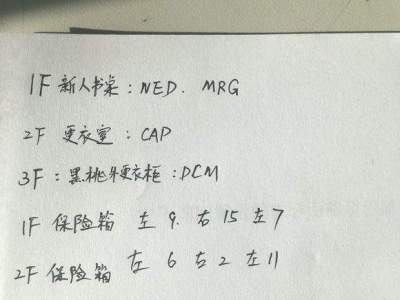 1F 新人书桌：NED. MRG
2F 更衣室：CAP
3F：黑桃牛更衣柜：DCM
1F 保险箱 左 9. 右 15 左 7
2F 保险箱 左 6 右 2 左 11